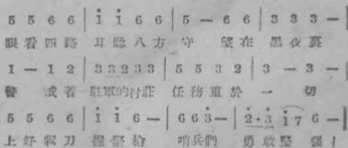 5 5 6 6 | i̇ i̇ 6 6 | 5 — 6 6 | 3 3 3 — |
眼看四路 耳聽八方 守 望在 黑夜裏
1 — 1 2 | 3 3 2 3 3 | 5 5 3 2 | 3 — 3 — |
警 戒着 駐軍的村莊 任務重於 一 切
5 5 6 6 | i̇ i̇ 6 — | 6 6 3 — | 2̇·3̇ i̇7 6 — |
上好刺刀 握緊槍 哨兵們 勇敢堅强!